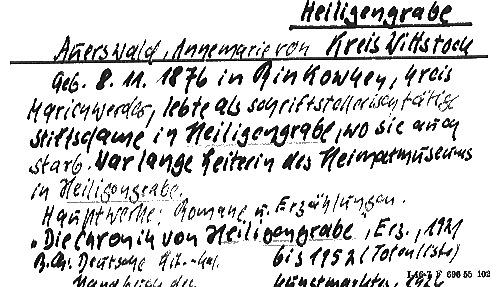 Heiligengrabe
Auerswald, Annemarie von Kreis Wittstock
geb. 8. 11. 1876 in Rinkowken, Kreis
Marienwerder, lebte als schriftstellerisch tätige
Stiftsdame in Heiligengrabe, wo sie auch
starb. War lange Leiterin des Heimatmuseums
in Heiligengrabe.
Hauptwerke: Romane u. Erzählungen.
"Die Chronik von Heiligengrabe, Erz., 1921
Deutsche Lit.-Kal. bis 1952 (Totenliste)
Handbuch des 1926